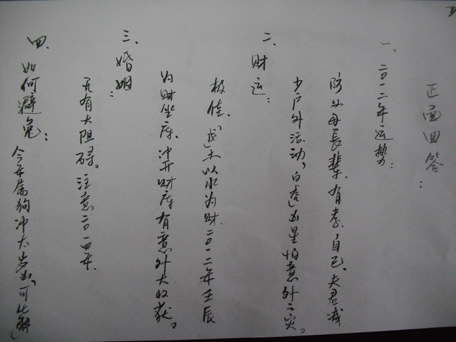 正面回答：
一、二〇一二年运势：
除父母長輩有恙，自己、夫君减
少户外活动，白虎出星怕意外之灾。
二、财运：
极佳，戊土以水为财，二〇一二年壬辰
为财坐库，冲开财库有意外大收获。
三、婚姻：
无有大阻碍。注意二〇一四年
四、如何避免：今年属狗冲太岁，可化解